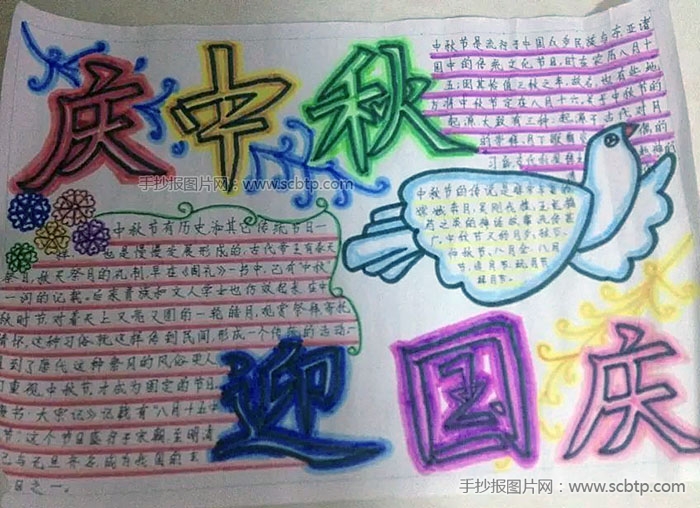 庆中秋
中秋节是流行于中国众多民族与东亚诸
国中的传统文化节日,时在农历八月十
五;因其恰值三秋之半,故名,也有些地
方将中秋节定在八月十六。关于中秋节的
起源大致有三种:起源于古代对月
的崇拜、月下歌舞觅偶的
习俗
手抄报图片网:www.scbtp.com
中秋节的传说是非常丰富的
嫦娥奔月,吴刚伐桂,玉兔捣
药之类的神话故事流传甚
广。中秋节又称月夕,秋节、
仲秋节、八月会、八月
节、追月节、玩月节
拜月节。
中秋节有历史和其它传统节日一
样,也是慢慢发展形成的,古代帝王有春天
祭日,秋天祭月的礼制,早在《周礼》一书中,已有“中秋
一词的记载。后来贵族和文人学士也仿效起来,在中
秋时节,对着天上又亮又圆的一轮皓月,观赏祭拜,寄托
情怀,这种习俗就这样传到民间,形成一个传统的活动一
直到了唐代,这种祭月的风俗更人
们重视,中秋节才成为固定的节日
唐书·太宗记》记载有“八月十五中
节”,这个节日盛行于宋朝,至明清
已与元旦齐名,成为我国的主
节日之一。
迎国庆
手抄报图片网:www.scbtp.com